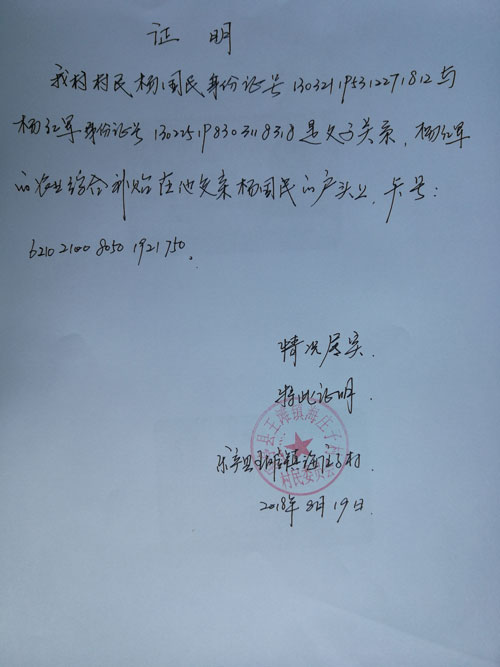 证 明
我村村民杨国民身份证号130321195312271812与
杨红军身份证号130225198303118318是父子关系，杨红军
的农业综合补贴在他父亲杨国民的户头上，卡号：
6210 2100 8050 1921 750。
情况属实.
特此证明
乐亭县王滩镇海庄子村
县王滩镇海庄子
村民委员会
2018年8月19日.